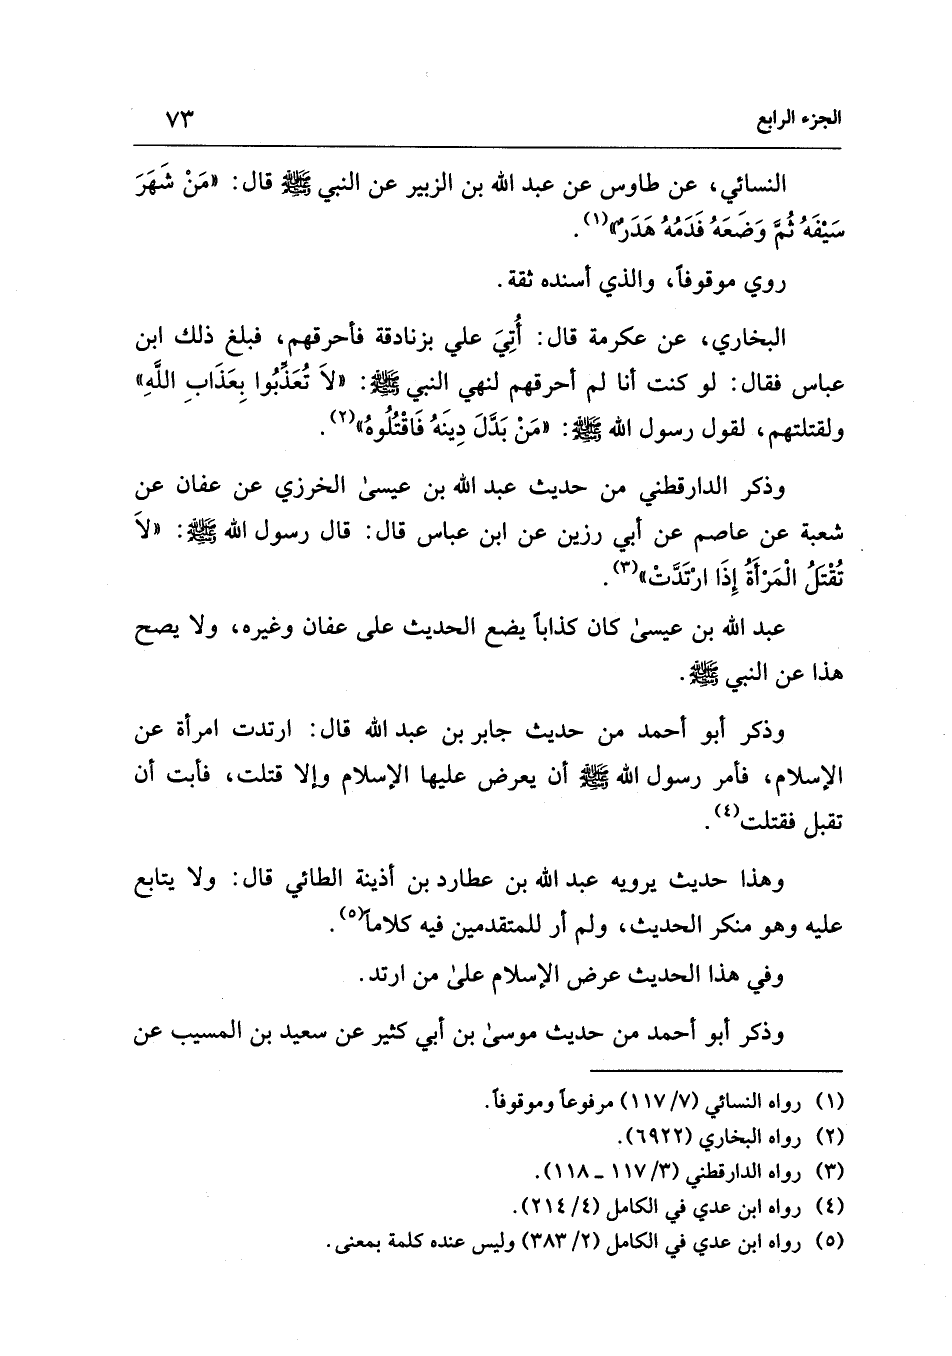 الجزء الرابع ٧٣
النسائي، عن طاوس عن عبد الله بن الزبير عن النبي ﷺ قال: «مَنْ شَهَرَ
سَيْفَهُ ثُمَّ وَضَعَهُ فَدَمُهُ هَدَرٌ»(١).
روي موقوفاً، والذي أسنده ثقة.
البخاري، عن عكرمة قال: أُتِيَ علي بزنادقة فأحرقهم، فبلغ ذلك ابن
عباس فقال: لو كنت أنا لم أحرقهم لنهي النبي ﷺ: «لاَ تُعَذِّبُوا بِعَذَابِ اللَّهِ»
ولقتلتهم، لقول رسول الله ﷺ: «مَنْ بَدَّلَ دِينَهُ فَاقْتُلُوهُ»(٢).
وذكر الدارقطني من حديث عبد الله بن عيسىٰ الخرزي عن عفان عن
شعبة عن عاصم عن أبي رزين عن ابن عباس قال: قال رسول الله ﷺ: «لاَ
تُقْتَلُ الْمَرْأَةُ إِذَا ارْتَدَّتْ»(٣).
عبد الله بن عيسىٰ كان كذاباً يضع الحديث على عفان وغيره، ولا يصح
هذا عن النبي ﷺ.
وذكر أبو أحمد من حديث جابر بن عبد الله قال: ارتدت امرأة عن
الإسلام، فأمر رسول الله ﷺ أن يعرض عليها الإسلام وإلا قتلت، فأبت أن
تقبل فقتلت(٤).
وهذا حديث يرويه عبد الله بن عطارد بن أذينة الطائي قال: ولا يتابع
عليه وهو منكر الحديث، ولم أر للمتقدمين فيه كلاماً(٥).
وفي هذا الحديث عرض الإسلام علىٰ من ارتد.
وذكر أبو أحمد من حديث موسىٰ بن أبي كثير عن سعيد بن المسيب عن
(١) رواه النسائي (٧/ ١١٧) مرفوعاً وموقوفاً.
(٢) رواه البخاري (٦٩٢٢).
(٣) رواه الدارقطني (٣/ ١١٧ ـ ١١٨).
(٤) رواه ابن عدي في الكامل (٤/ ٢١٤).
(٥) رواه ابن عدي في الكامل (٢/ ٣٨٣) وليس عنده كلمة بمعنى.